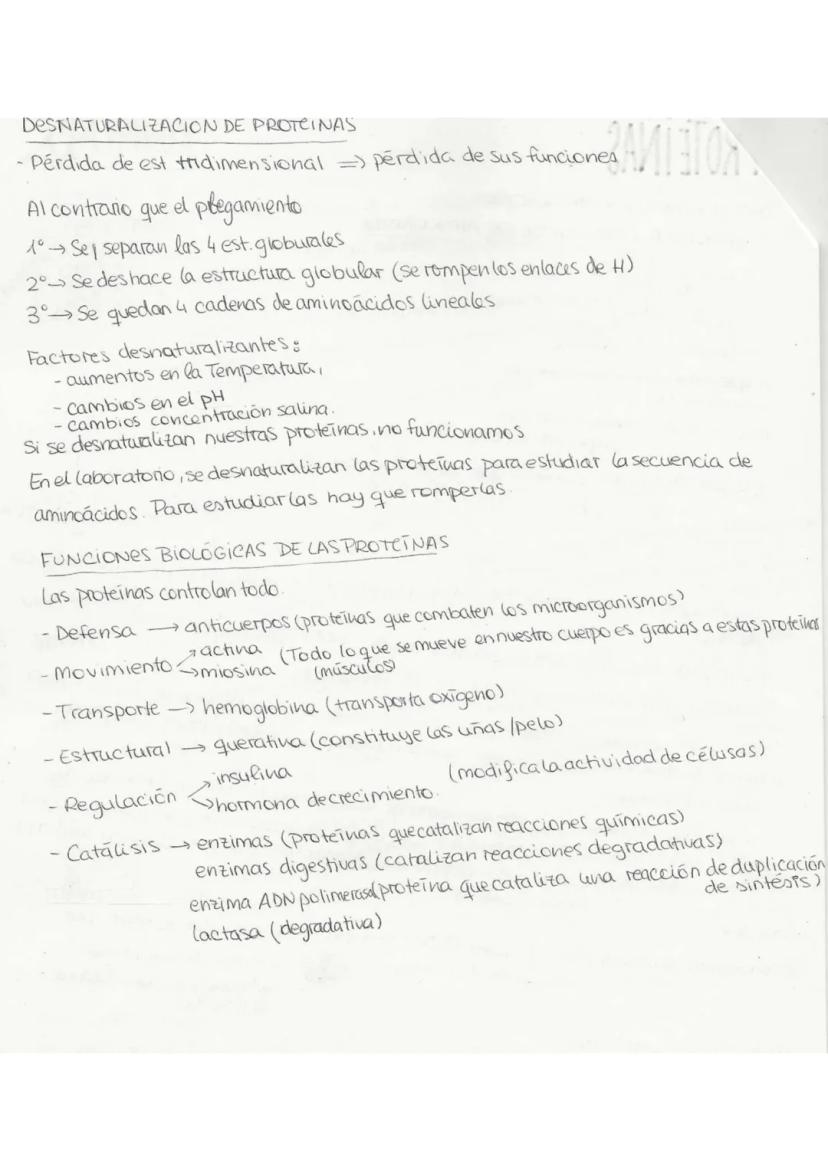 DESNATURALIZACION DE PROTEINAS
- Pérdida de est tridimensional => pérdida de sus funciones
Al contrario que el plegamiento
1º → Se separan las 4 est. globurales
2º → Se deshace la estructura globular (se rompen los enlaces de H)
3º → Se quedan 4 cadenas de aminoácidos lineales
Factores desnaturalizantes:
- aumentos en la Temperatura,
- cambios en el pH
- cambios concentración salina.
Si se desnaturalizan nuestras proteínas, no funcionamos
En el laboratorio, se desnaturalizan las proteínas para estudiar la secuencia de
aminoácidos. Para estudiarlas hay que romperlas.
FUNCIONES BIOLÓGICAS DE LAS PROTEÍNAS
Las proteínas controlan todo.
- Defensa → anticuerpos (proteínas que combaten los microorganismos)
- Movimiento → actina (Todo lo que se mueve en nuestro cuerpo es gracias a estas proteínas
→ miosina (músculos)
- Transporte → hemoglobina (transporta oxígeno)
- Estructural → queratina (constituye las uñas / pelo)
- Regulación → insulina (modifica la actividad de célusas)
→ hormona de crecimiento.
- Catálisis → enzimas (proteínas que catalizan reacciones químicas)
enzimas digestivas (catalizan reacciones degradativas)
enzima ADN polimerasa (proteína que cataliza una reacción de duplicación
de sintésis)
lactasa (degradativa)